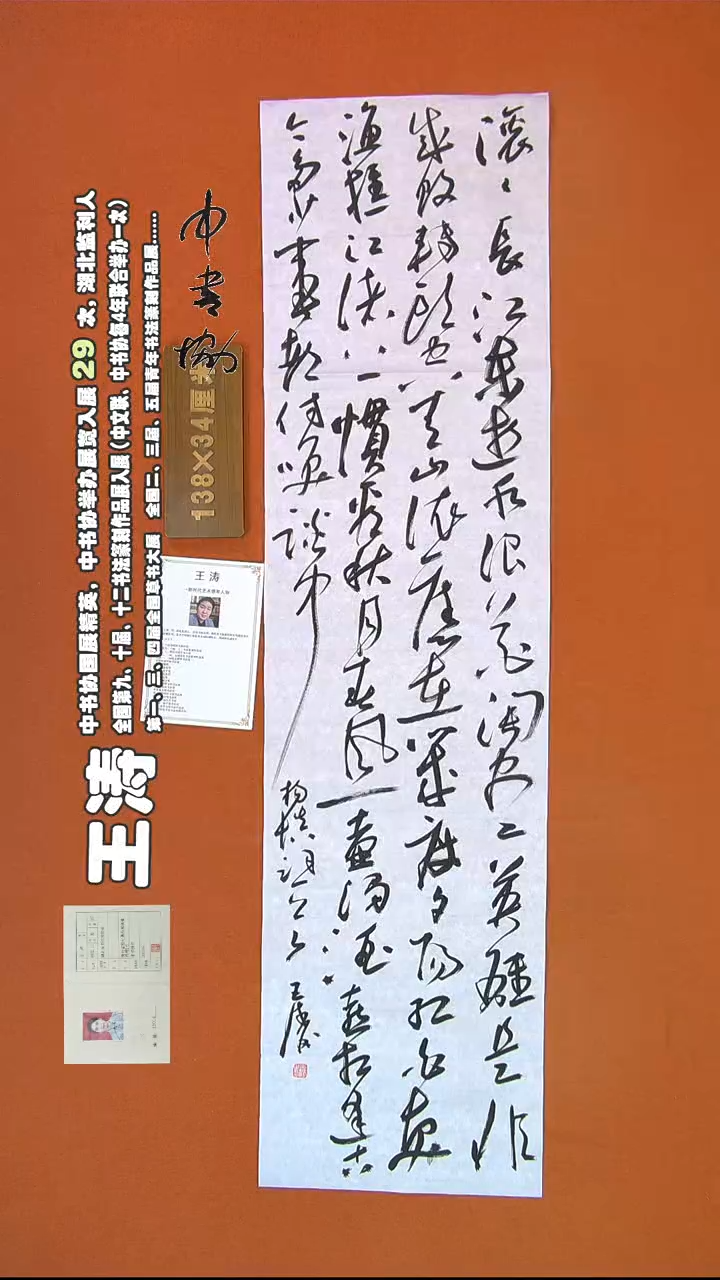 滚滚长江东逝水浪花淘尽英雄是非
成败转头空青山依旧在几度夕阳红白发
渔樵江渚上惯看秋月春风一壶浊酒喜相逢古
今多少事都付笑谈中
杨慎词 王涛
中书协
138×34厘米
王涛
中书协国展精英，中书协举办展览入展 29 次，湖北监利人
全国第九、十届、十二书法篆刻作品展入展（中文联、中书协每4年联合举办一次）
第一、三、四届全国草书大展 全国二、三届、五届青年书法篆刻作品展......
王 涛